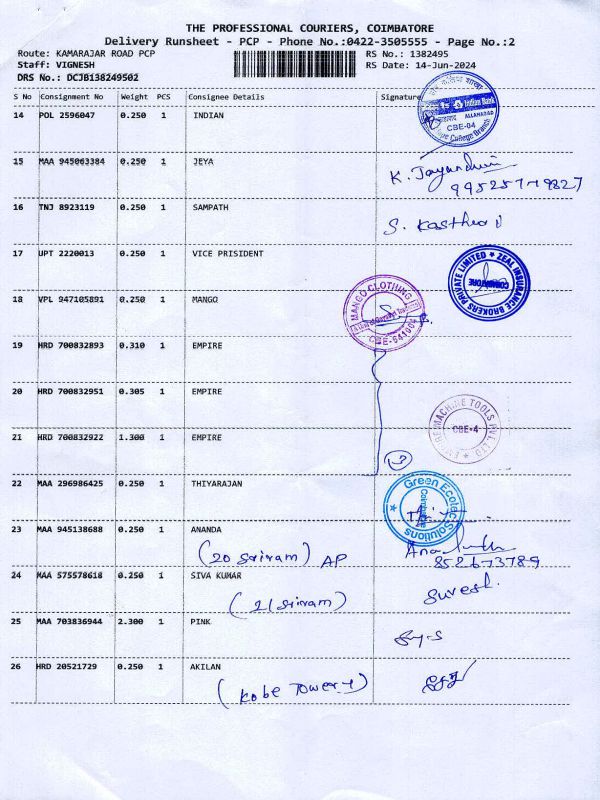 THE PROFESSIONAL COURIERS, COIMBATORE
Delivery Runsheet - PCP - Phone No.:0422-3505555 - Page No.:2
Route: KAMARAJAR ROAD PCP RS No.: 1382495
Staff: VIGNESH RS Date: 14-Jun-2024
DRS No.: DCJB138249502
S No Consignment No Weight PCS Consignee Details Signature
14 POL 2596047 0.250 1 INDIAN
Indian Bank
ALLAHABAD
CBE-04
College Branch
15 MAA 945063384 0.250 1 JEYA
K. Jayandhini
16 TNJ 8923119 0.250 1 SAMPATH
S. Kasthuri
17 UPT 2220013 0.250 1 VICE PRISIDENT
ZEAL INSURANCE BROKERS PRIVATE LIMITED
COIMBATORE
18 VPL 947105891 0.250 1 MANGO
MANGO CLOTHING
CBE-641004
19 HRD 700832893 0.310 1 EMPIRE
20 HRD 700832951 0.305 1 EMPIRE
MACHINE TOOLS PVT. LTD
CBE-4
21 HRD 700832922 1.300 1 EMPIRE
3
22 MAA 296986425 0.250 1 THIYARAJAN
Green Ecotec Solutions
23 MAA 945138688 0.250 1 ANANDA
(20 Sriram) AP
8526773789
24 MAA 575578618 0.250 1 SIVA KUMAR
(21 Sriram) Suresh.
25 MAA 703836944 2.300 1 PINK
26 HRD 20521729 0.250 1 AKILAN
(Kobe Tower)